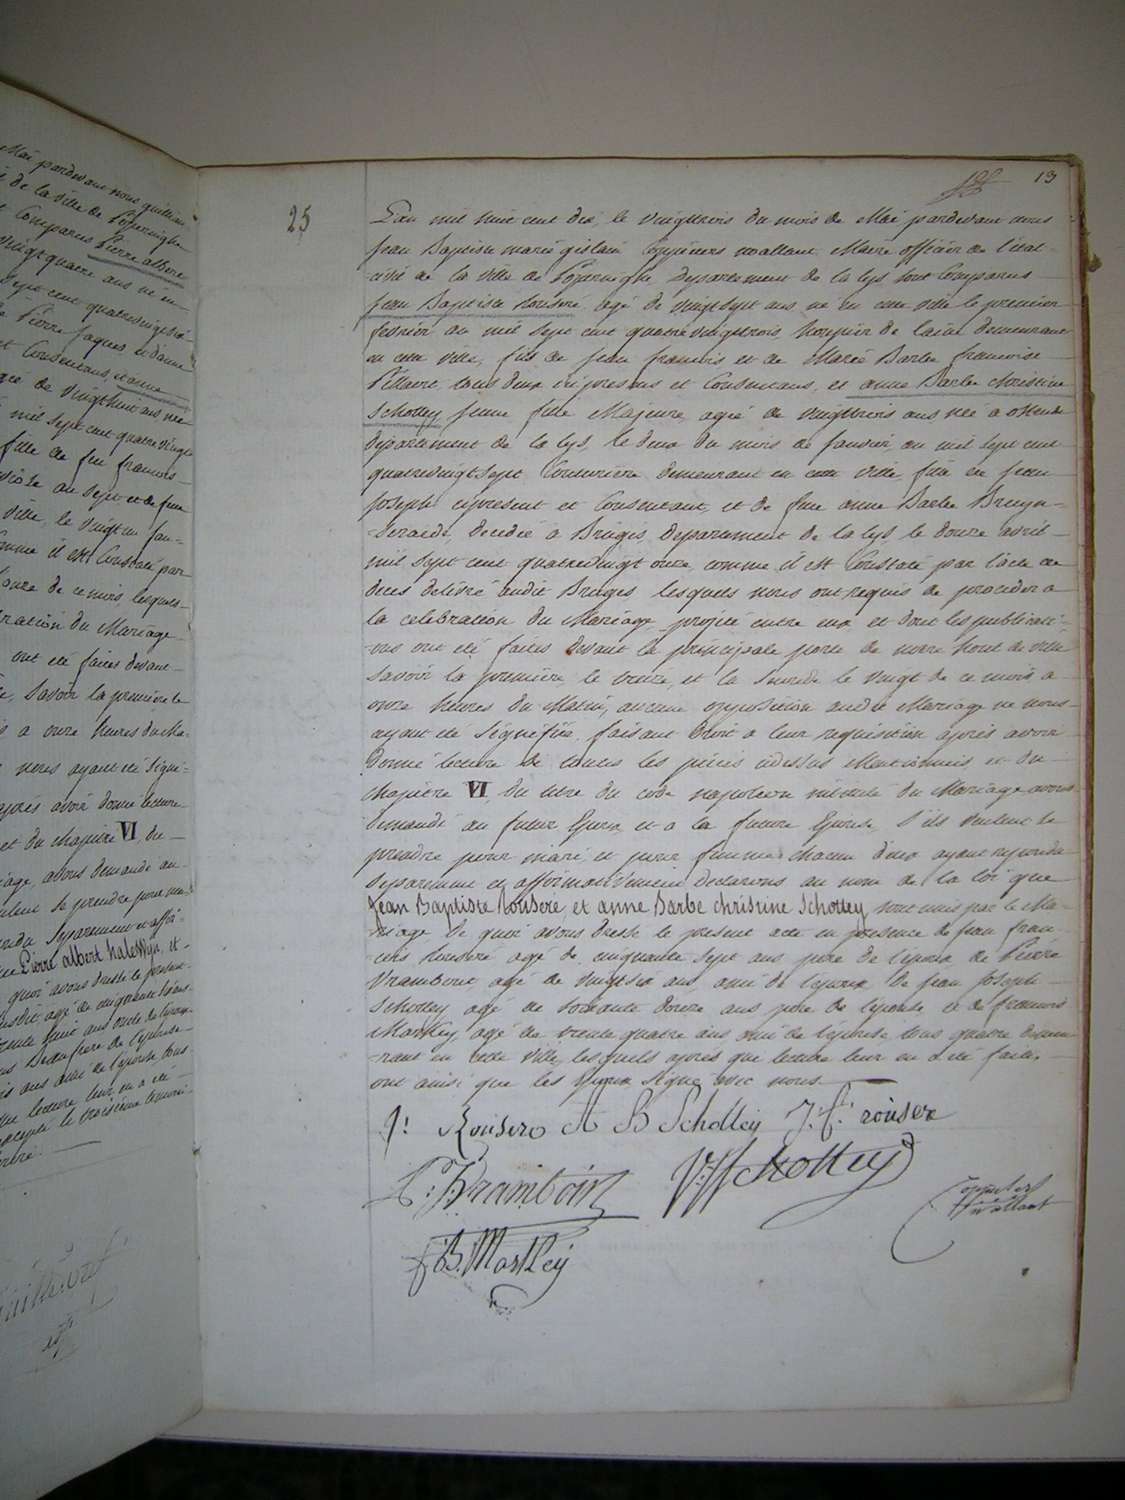 13
25
L'an mil huit cent dix, le vingttrois du mois de Mai pardevant nous
Jean Baptiste marie gislain Coppieters wallant Maire officier de l'état
civil de la ville de Poperinghe, Departement de la Lys sont Comparus
Jean Baptiste Rousere, agé de vingtsept ans né en cette ville le premier
fevrier an mil sept cent quatrevingttrois, demeurant
en cette ville, fils de Jean francois et de Marie Barbe francoise
tous deux cipresens et Consentans, et anne Barbe christine
Schottey Jeune fille Majeure, agée de vingttrois ans, née a ostende
departement de la Lys, le deux du mois de Janvier, an mil sept cent
quatrevingtsept Couturiere demeurant en cette ville, fille de Jean
Joseph cipresent et Consentant et de feue anne Barbe Bruyn-
-seraede, decedée à Bruges, departement de la Lys, le douze avril
mil sept cent quatrevingt onze comme il est Constaté par l'acte de
deces delivré audit Bruges lesquels nous ont requis de proceder a
la celebration du Mariage projeté entre eux et dont les publicati-
-ons ont été faites devant la principale porte de notre hotel de ville
savoir la premiere, le treize, et la seconde le vingt de ce mois a
onze heures du Matin, aucune opposition audit Mariage ne nous
ayant été signifiée, faisant droit a leur requisition apres avoir
donné lecture de toutes les pieces cidessus Mentionnees et du
chapitre VI, du titre du code napoleon intitulé du Mariage avons
demandé au futur Epoux et a la future Epouse s'ils veulent se
prendre pour mari et pour femme chacun d'eux ayant repondu
separement et affirmativement Declarons au nom de la loi que
Jean Baptiste Rousere, et anne Barbe christine Schottey sont unis par le Ma-
-riage De quoi avons dressé le present acte en presence de Jean fran-
-cois Rouseré agé de cinquante sept ans pere de l'epoux de Pierre
Vramboue, agé de vingtsix ans ami de l'epoux de Jean Joseph
Schottey agé de soixante douze ans pere de l'epouse et de francois
Martley, agé de trente quatre ans ami de l'epouse tous quatre demeu-
-rant en cette ville, lesquels apres que lecture leur en a été faite,
ont ainsi que les Epoux signé avec nous.
Rousere A B Schottey J. f. rouser
P. J. Vramboin Schottey
Coppieters
Wallant
f B. Martley
Mai pardevant nous
de la ville de Poperinghe
Comparus Pierre albert
vingtquatre ans né en
sept cent quatrevingt
Pierre Jaques, et d'anne
et Consentans, et anne
agée de vingthuit ans née
mil sept cent quatrevingt
fille de feu francois
ville, le vingt un Jan-
comme il est Constaté par
douze de ce mois, lesquels
-bration du Mariage
ont été faites devant
, savoir la premiere le
a onze heures du Ma-
nous ayant été signi-
après avoir donné lecture
et du chapitre VI, du
-iage avons demandé au
veulent se prendre pour ma-
repondu separement et affir-
que Pierre albert halewyn, et
quoi avons dressé le present
cinquante
trente huit ans oncle de l'epoux
ans Beaufrere de l'epouse
ans ami de l'epouse tous
que lecture leur en a été
excepté le troisieme temoin